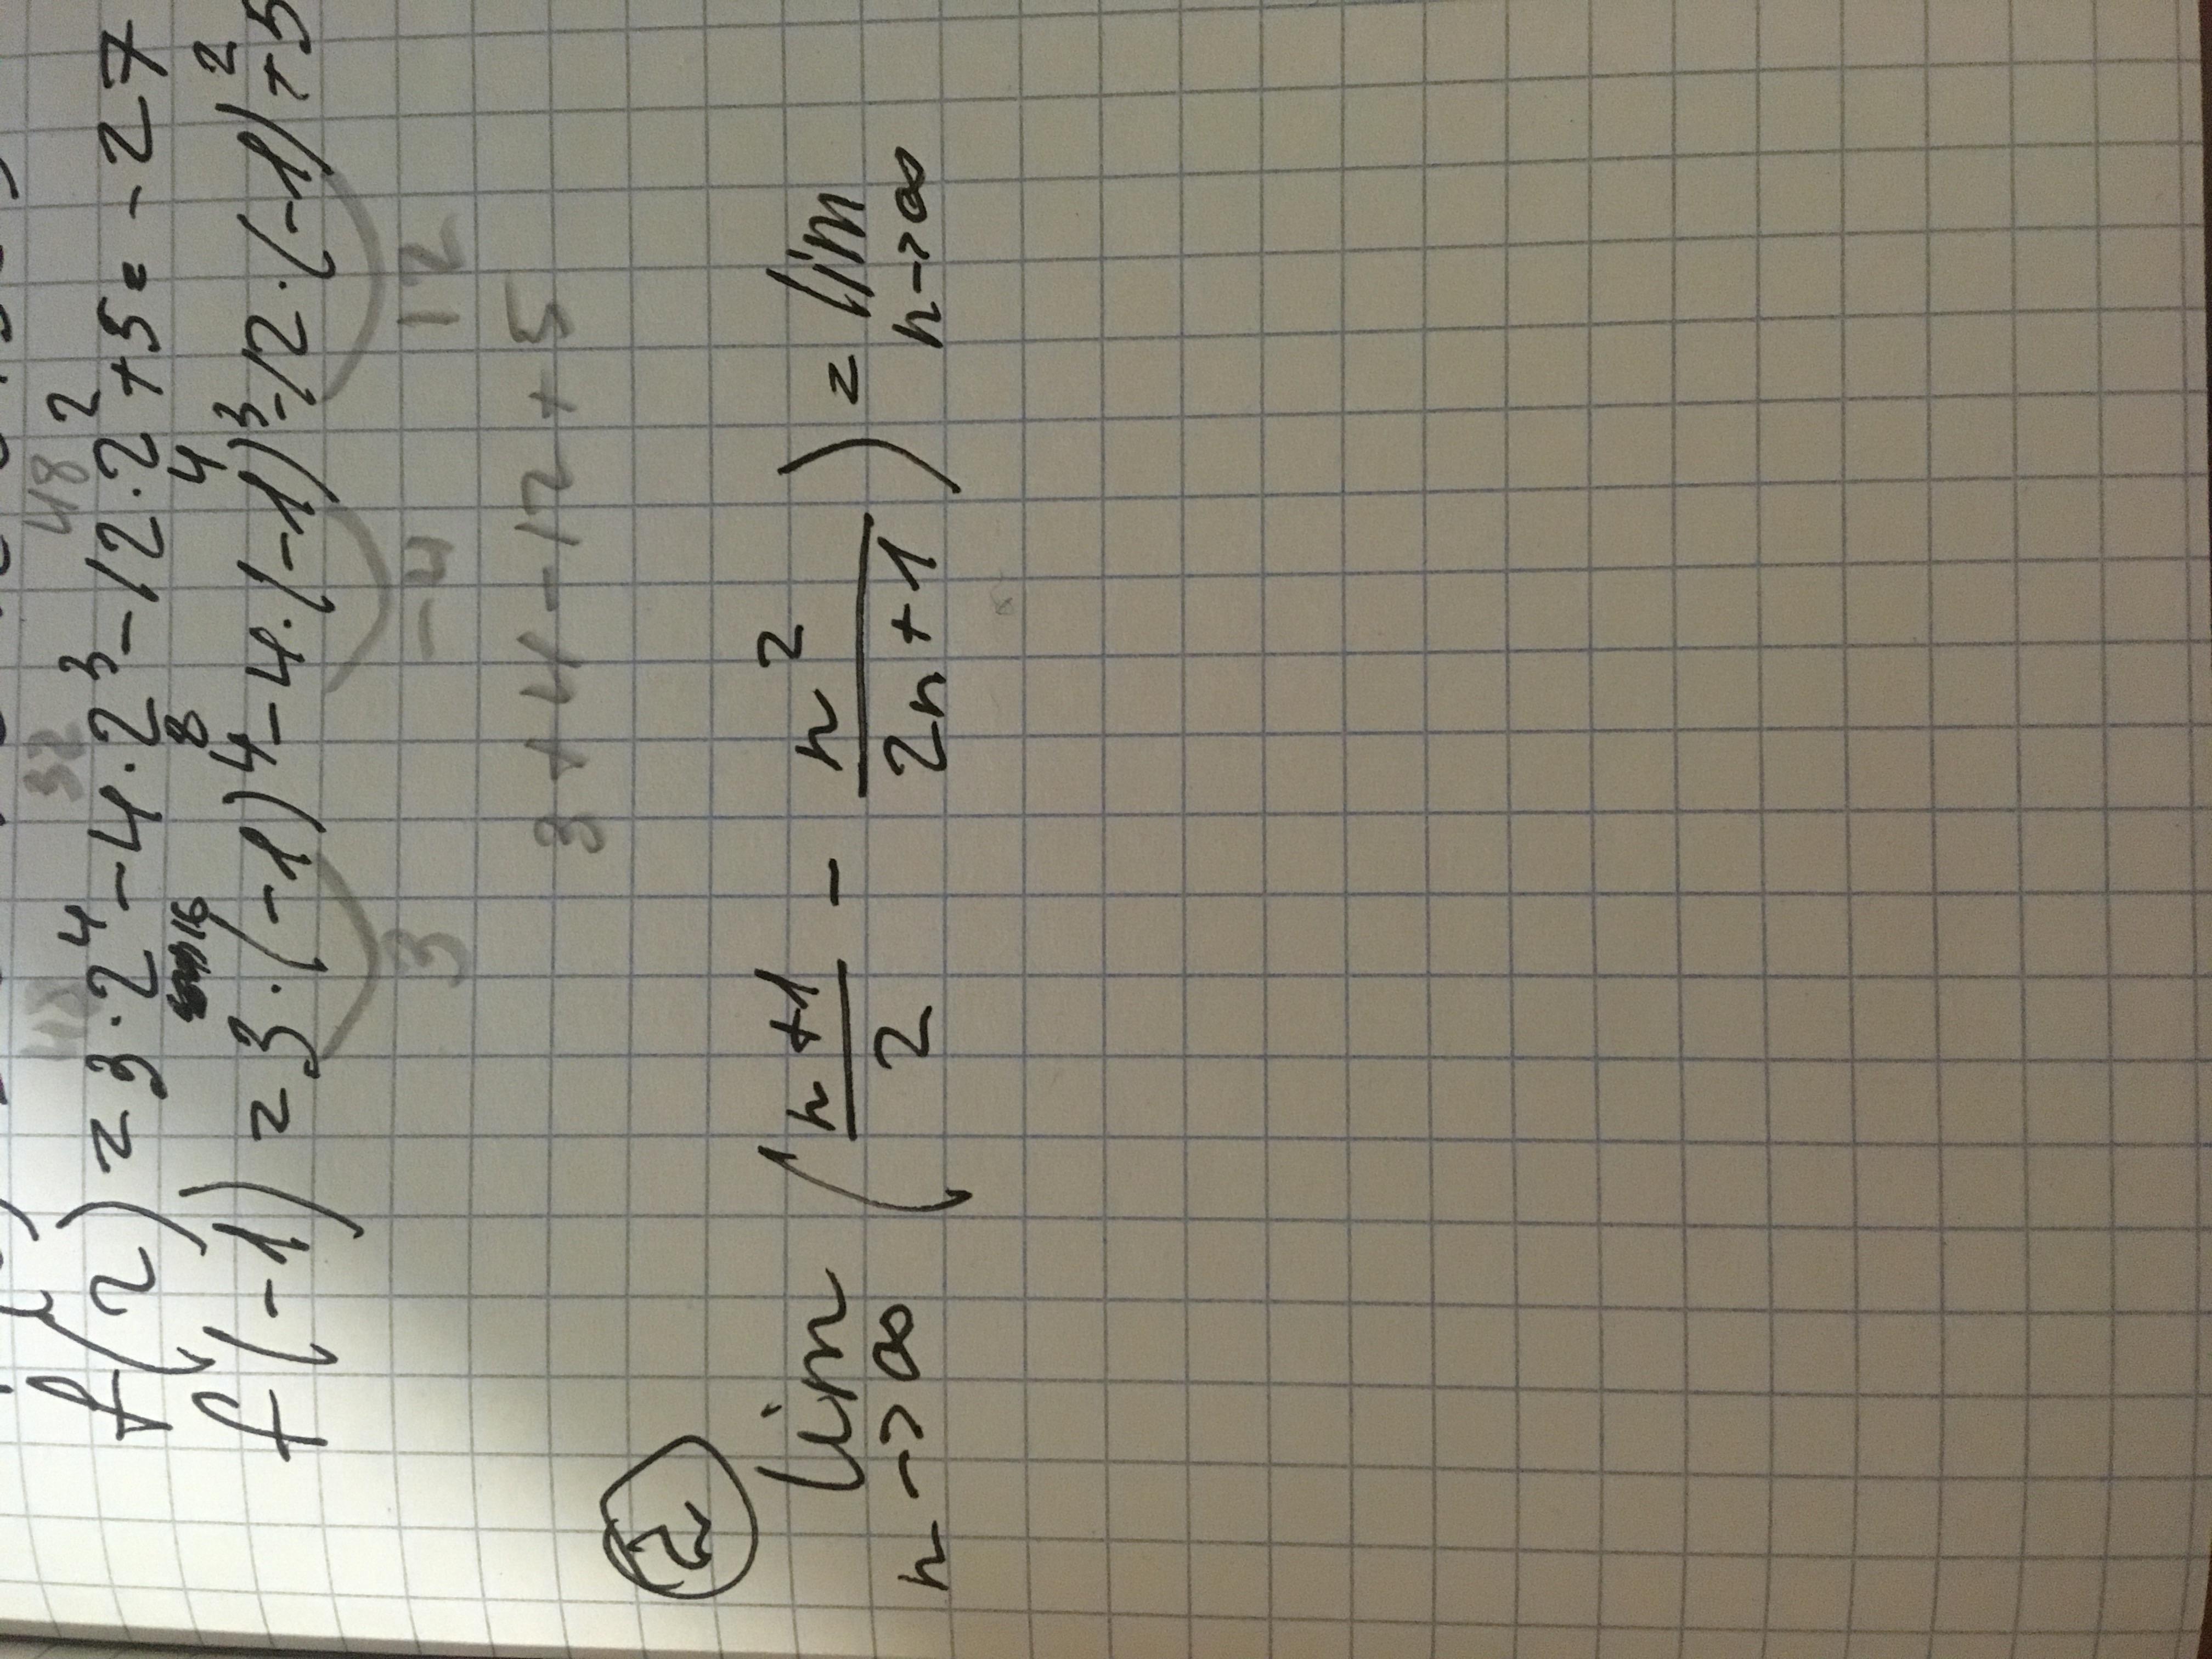 48 32 48
f(2) = 3·2⁴-4·2³-12·2²+5= -27
16 8 4
f(-1) = 3·(-1)⁴-4·(-1)³-12·(-1)²+5
3 -4 12
3+4-12+5
2
lim n->∞ (n+1/2 - n²/2n+1) = lim n->∞